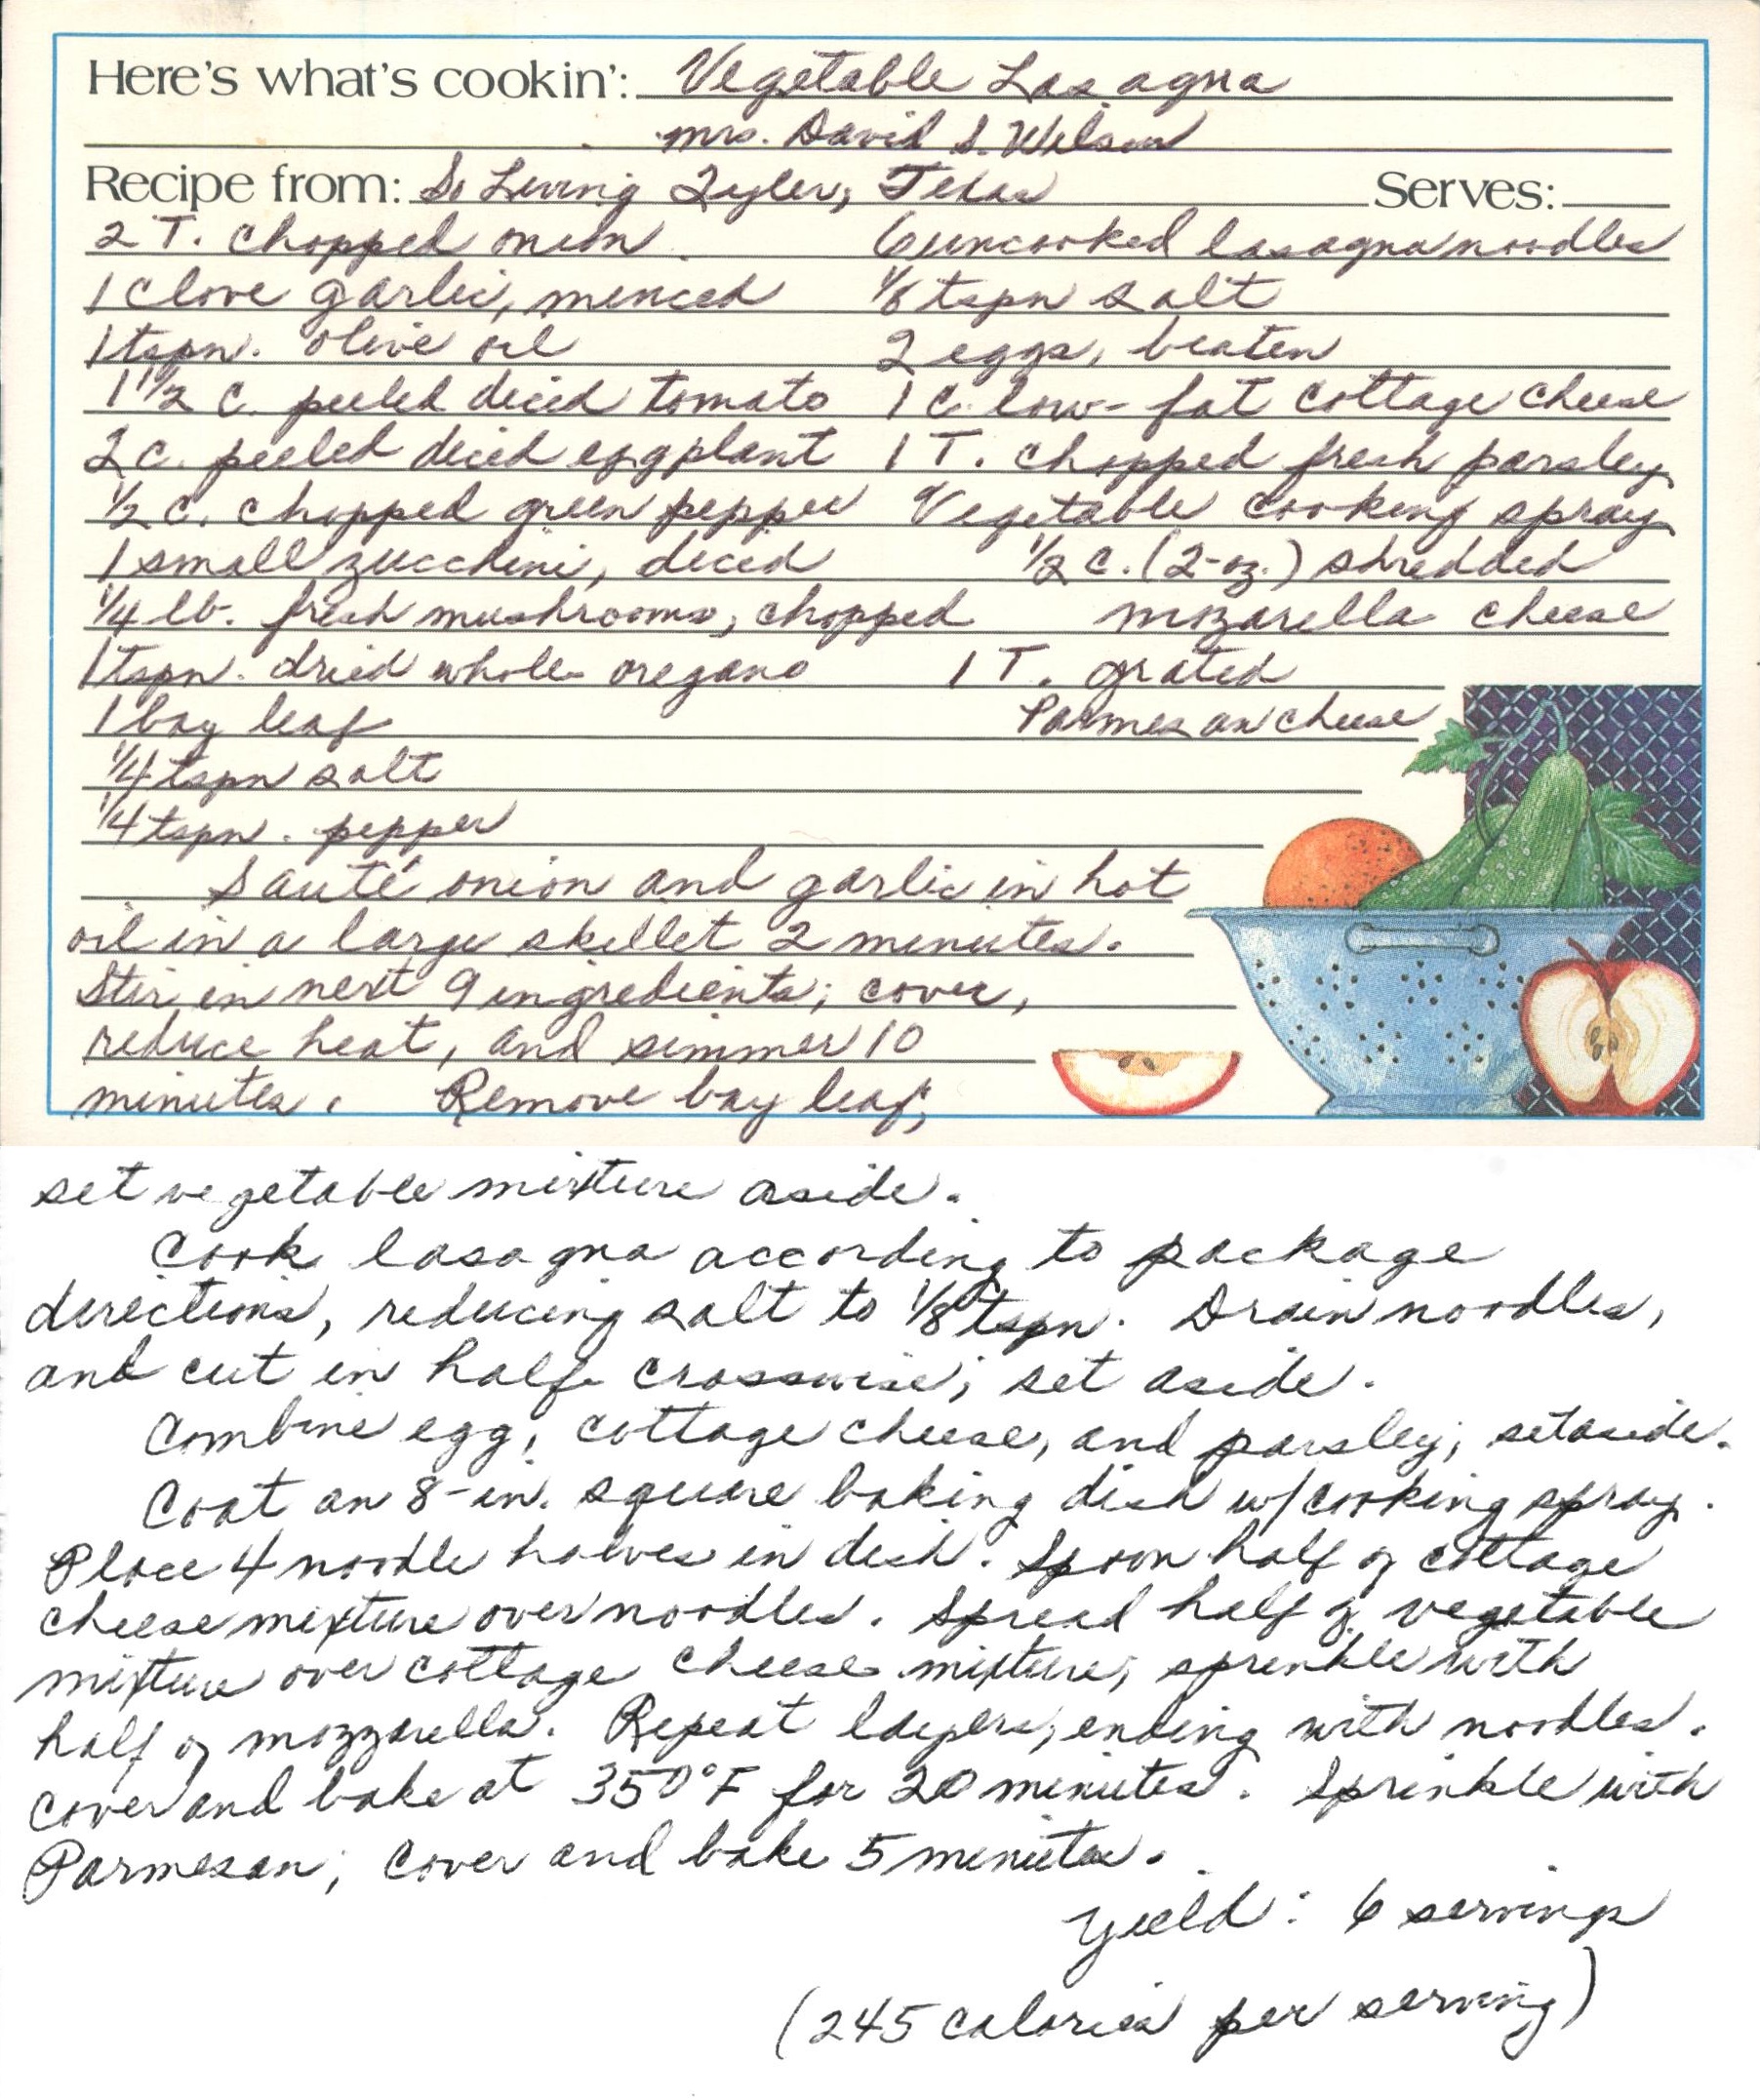 Here's what's cookin': Vegetable Lasagna
Mrs. David S. Wilson
Recipe from: So Living Tyler, Texas Serves:
2 T. chopped onion
1 clove garlic, minced
1 tspn. olive oil
1 1/2 c. peeled diced tomato
2 c. peeled diced eggplant
1/2 c. chopped green pepper
1 small zucchini, diced
1/4 lb. fresh mushrooms, chopped
1 tspn. dried whole oregano
1 bay leaf
1/4 tspn salt
1/4 tspn. pepper
6 uncooked lasagna noodles
1/8 tspn salt
2 eggs, beaten
1 c. low-fat cottage cheese
1 T. chopped fresh parsley
Vegetable cooking spray
1/2 c. (2-oz.) shredded
mozarella cheese
1 T. grated
Parmesan cheese
Sauté onion and garlic in hot
oil in a large skillet 2 minutes.
Stir in next 9 ingredients; cover,
reduce heat, and simmer 10
minutes. Remove bay leaf;
set vegetable mixture aside.
Cook lasagna according to package
directions, reducing salt to 1/8 tspn. Drain noodles,
and cut in half crosswise; set aside.
Combine egg, cottage cheese, and parsley; set aside.
Coat an 8-in. square baking dish w/cooking spray.
Place 4 noodle halves in dish. Spoon half of cottage
cheese mixture over noodles. Spread half of vegetable
mixture over cottage cheese mixture; sprinkle with
half of mozzarella. Repeat layers, ending with noodles.
Cover and bake at 350°F for 20 minutes. Sprinkle with
Parmesan; cover and bake 5 minutes.
Yield: 6 servings
(245 calories per serving)